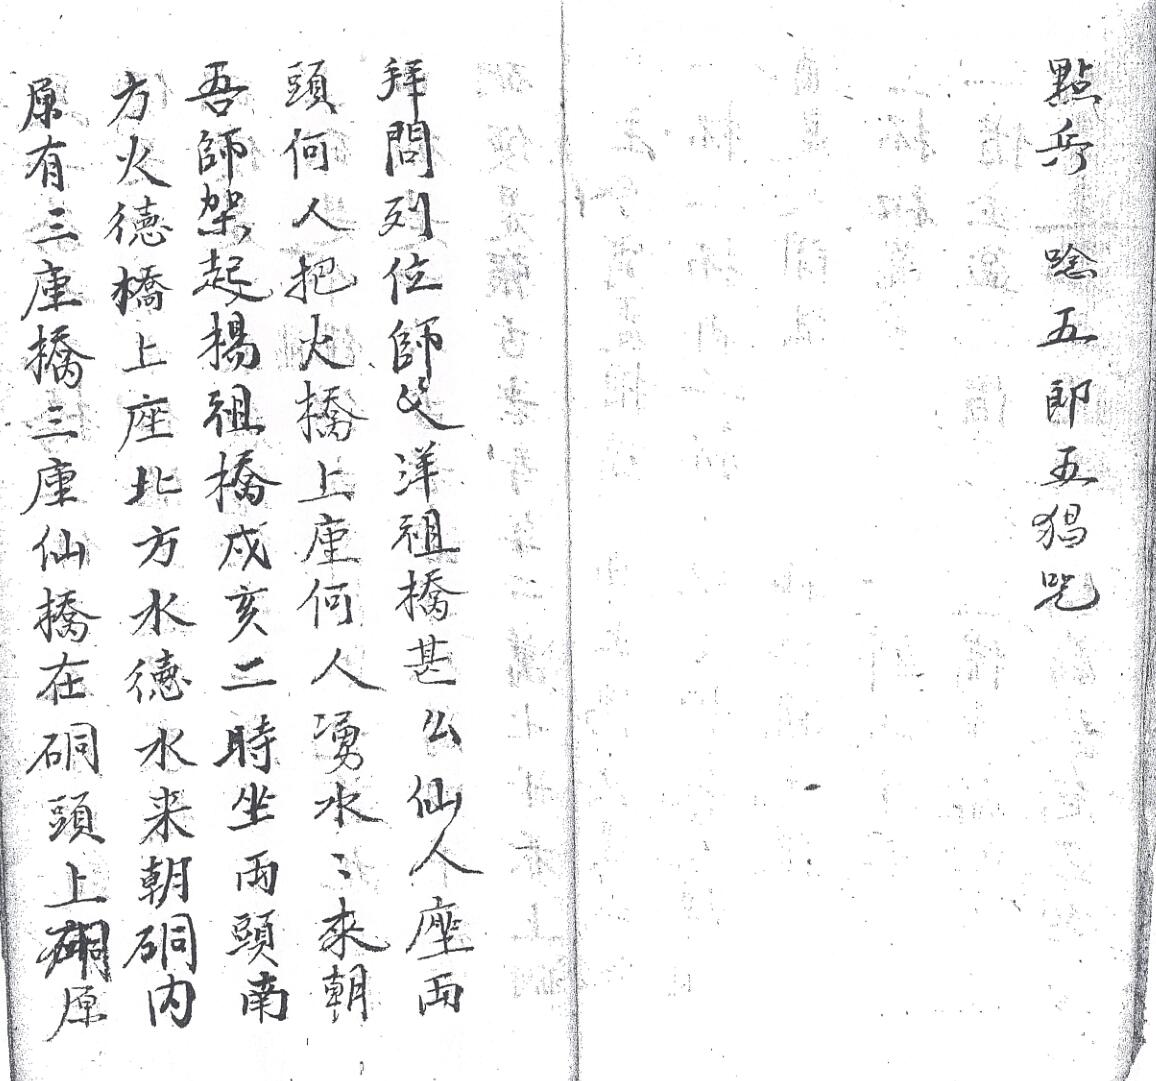 點兵　唸五郎五猖咒
拜問列位師父洋祖橋甚么仙人座両
頭何人把火橋上座何人湧水〻來朝
吾師架起楊祖橋戍亥二時坐両頭南
方火德橋上座北方水德水来朝硐内
原有三座橋三座仙橋在硐頭上硐原